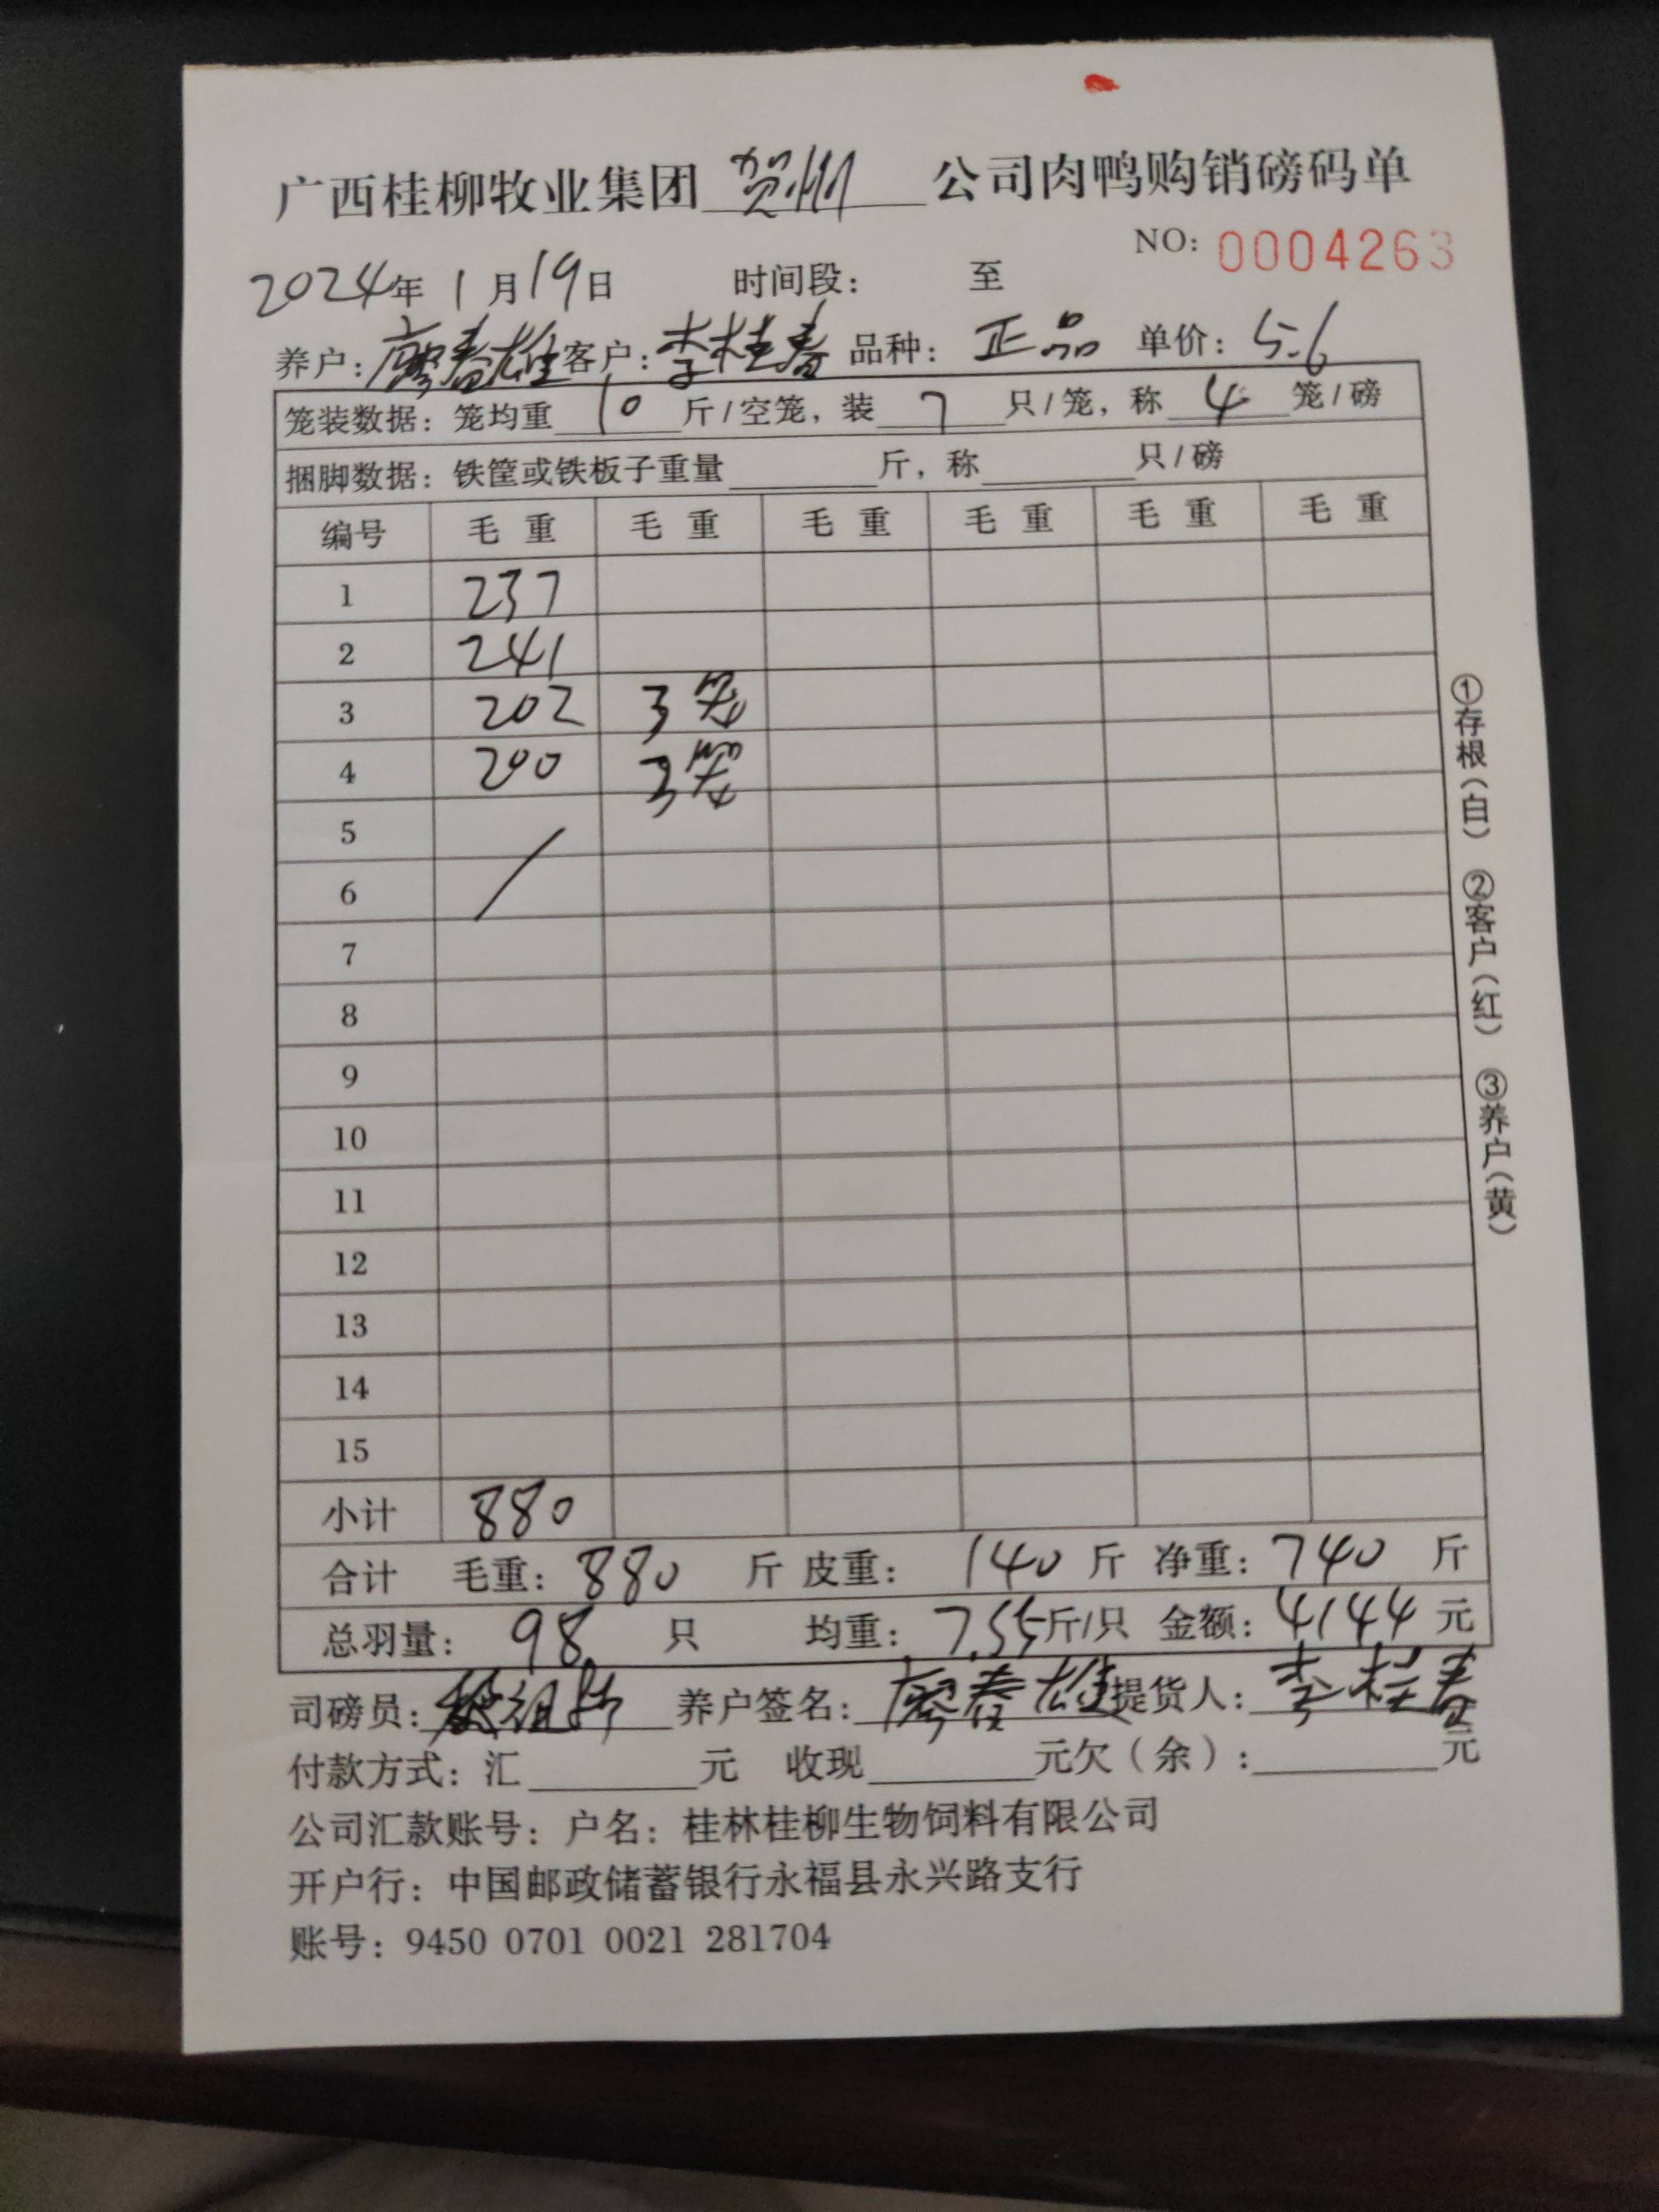 广西桂柳牧业集团 贺州 公司肉鸭购销磅码单
NO: 0004263
2024年 1月19日 时间段: 至
养户: 廖春雄 客户: 李桂春 品种: 正品 单价: 5.6
笼装数据: 笼均重 10 斤/空笼, 装 7 只/笼, 称 4 笼/磅
捆脚数据: 铁筐或铁板子重量 斤, 称 只/磅
编号 毛重 毛重 毛重 毛重 毛重 毛重
1 237
2 241
3 202 3笼
4 200 3笼
5
6
7
8
9
10
11
12
13
14
15
小计 880
合计 毛重: 880 斤 皮重: 140 斤 净重: 740 斤
总羽量: 98 只 均重: 7.55斤/只 金额: 4144 元
司磅员: 养户签名: 廖春雄 提货人: 李桂春
付款方式: 汇 元 收现 元欠(余): 元
公司汇款账号: 户名: 桂林桂柳生物饲料有限公司
开户行: 中国邮政储蓄银行永福县永兴路支行
账号: 9450 0701 0021 281704
①存根(白) ②客户(红) ③养户(黄)